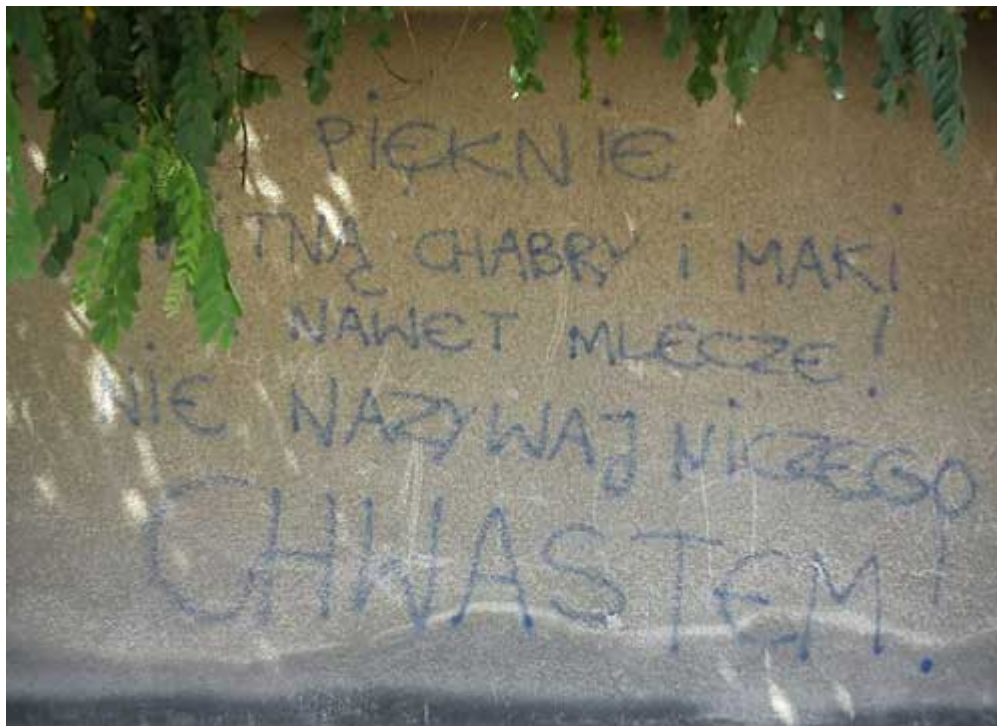 PIĘKNIE
TNĄ CHABRY i MAKi
NAWET MLECZE!
NIE NAZYWAJ NiCZEGO
CHWASTEM!